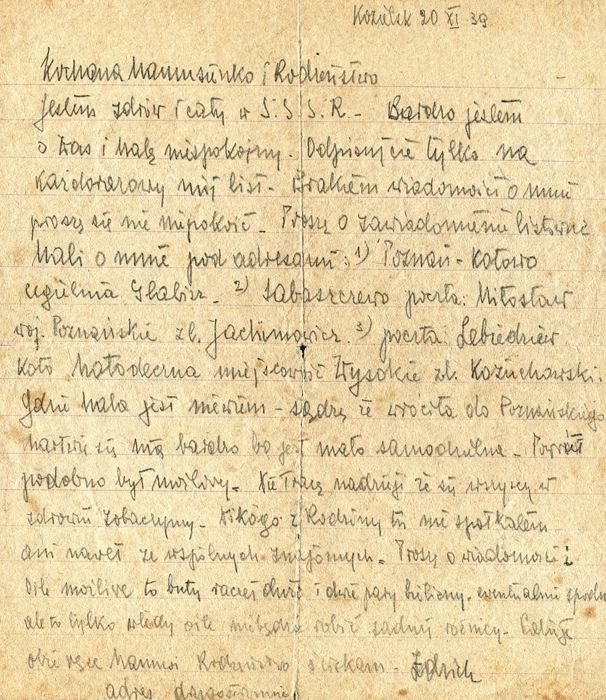 Kozielsk 20 XI 39
Kochana Mamusieńko i Rodzeństwo
Jestem zdrów i cały w S.S.S.R. - Bardzo jestem
o Was i Halę niespokojny. Odpisujcie tylko na
każdorazowy mój list - Brakiem wiadomości o mnie
proszę się nie niepokoić - Proszę o zawiadomienie listowne
Hali o mnie pod adresami: 1) Poznań - Kotowo
cegielnia Glabisz - 2) Sabaszczewo poczta: Miłosław
woj. Poznańskie zb. Jachimowicz. 3) poczta: Lebiedziew
koło Mołodeczna miejscowość Wysokie zb. Kozuchowski.
Gdzie Hala jest nie wiem - sądzę że wróciła do Poznańskiego
martwię się nią bardzo bo jest mało samodzielna - Powrót
podobno był możliwy - Nie tracę nadzieji że się wszyscy w
zdrowiu zobaczymy - Nikogo z Rodziny tu nie spotkałem
ani nawet ze wspólnych znajomych - Proszę o wiadomości i
o ile możliwe to buty raczej duże i dwie pary bielizny, ewentualnie spodnie
ale to tylko wtedy o ile nie będzie robić żadnej różnicy - Całuję
obie ręce Mamusi Rodzeństwo ściskam -
adres